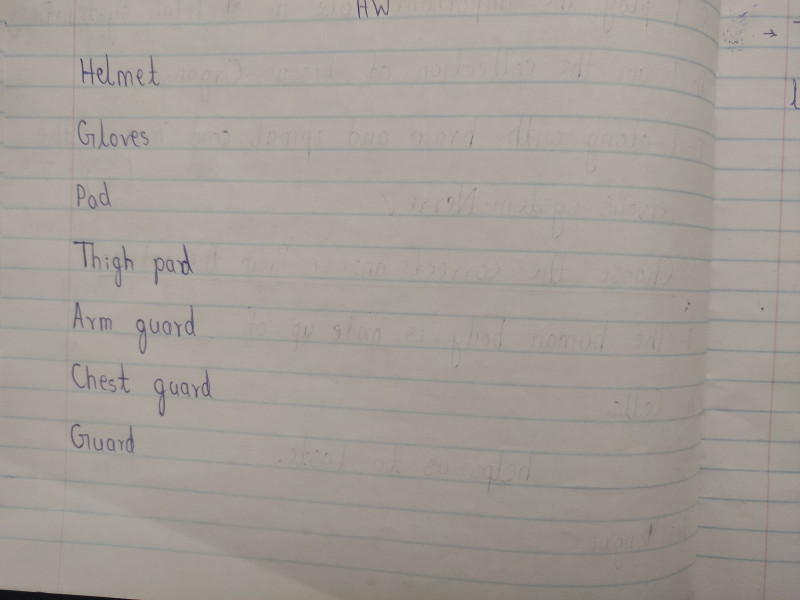 HW
Helmet
Gloves
Pad
Thigh pad
Arm guard
Chest guard
Guard